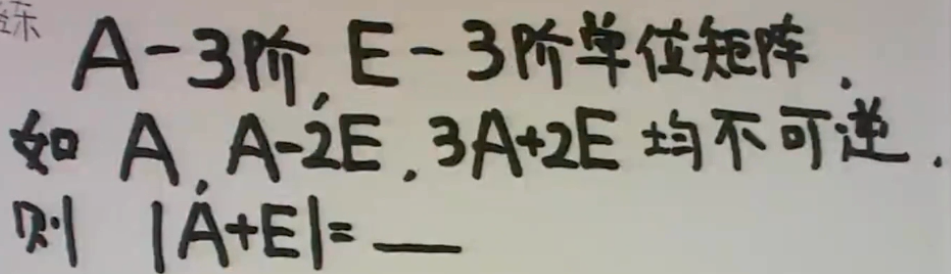 练
A-3阶, E-3阶单位矩阵.
如 A, A-2E, 3A+2E 均不可逆.
则 |A+E|=__